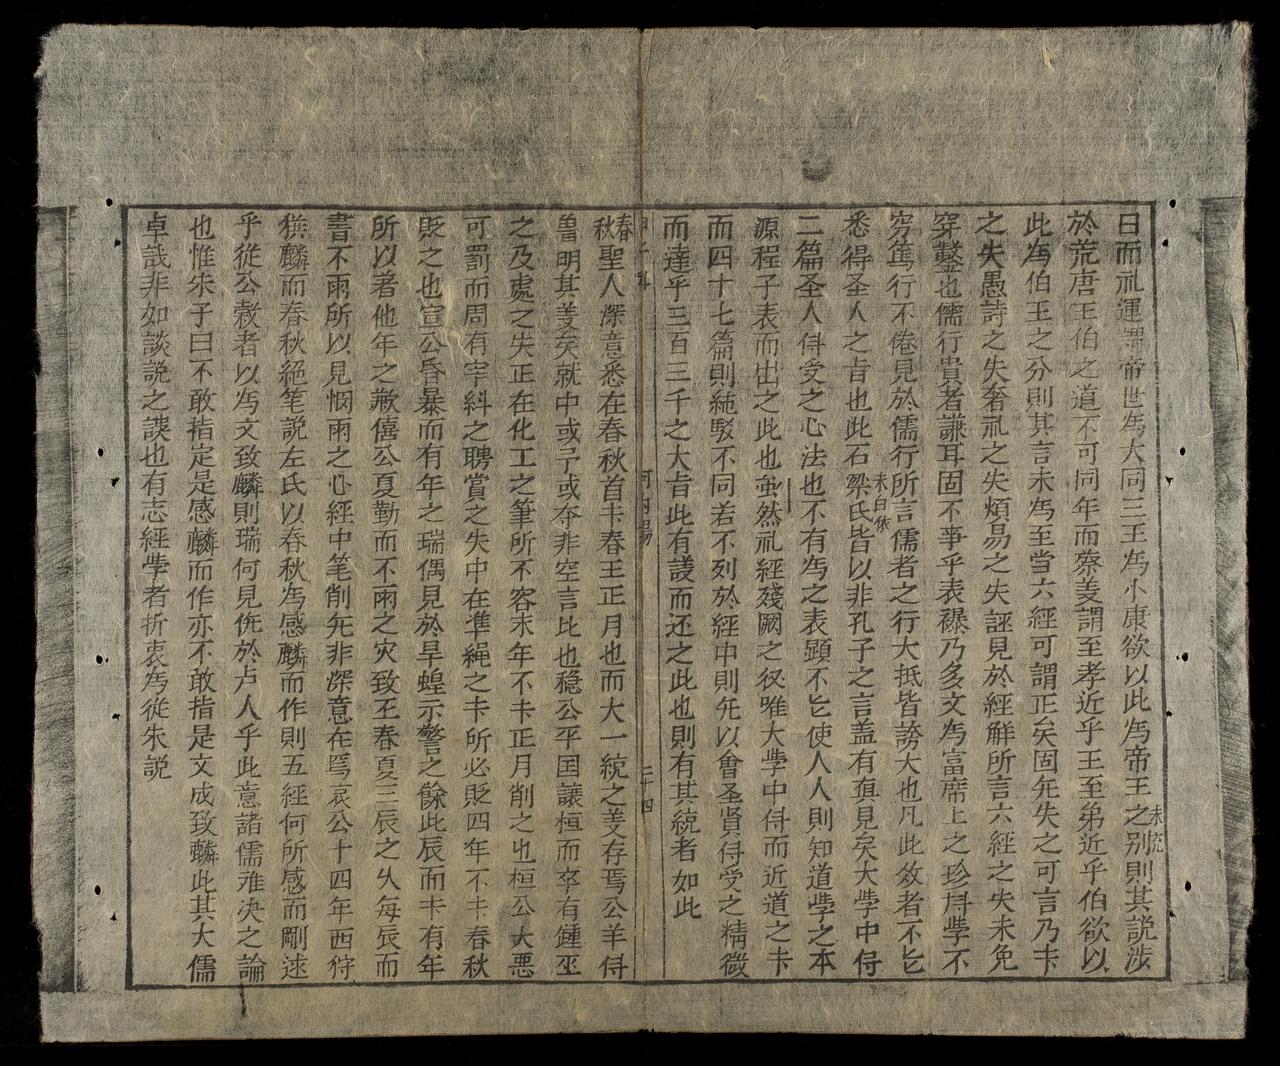 日而礼運謂帝世為大同三王為小康欲以此為帝王之别則其説涉
於荒唐王伯之道不可同年而斉姜謂至孝近乎王至弟近乎伯欲以
此為伯王之分則其言未為至当六経可謂正矣固无失之可言乃卡
之失愚詩之失奢礼之失煩易之失誣見於経解所言六経之失未免
穿鑿也儒行貴者謙耳固不事乎表襮乃多文為富席上之珍㪷学不
穷篤行不倦見於儒行所言儒者之行大抵皆誇大也凡此效者不匕
悉得圣人之旨也此石梁氏皆以非孔子之言盖有真見矣大学中㝵
二篇圣人㝵受之心法也不有為之表顕不匕使人人則知道学之本
源程子表而出之此也虽然礼経残阙之後唯大学中㝵而近道之卡
而四十七篇則純駁不同若不列於経中則无以會圣賢㝵受之精微
而達乎三百三千之大旨此有議而还之此也則有其統者如此
春秋聖人深意悉在春秋首卡春王正月也而大一統之姜存焉公羊㝵
曽明其姜矣就中或予或夺非空言比也穏公平国譲桓而卒有鍾巫
之及處之失正在化工之筆所不容末年不卡正月削之也桓公大悪
可罰而周有宰糾之聘賞之失中在準縄之卡所必貶四年不卡春秋
貶之也宣公昏暴而有年之瑞偶見於旱蝗示警之餘此辰而卡有年
所以著他年之歉僖公夏勤而不雨之灾致王春夏三辰之久每辰而
書不雨所以見悯雨之心経中笔削无非深意在焉哀公十四年西狩
獲麟而春秋絶笔説左氏以春秋為感麟而作則五経何所感而剛速
乎従公穀者以為文致麟則瑞何見㑄於占人乎此意諸儒难决之論
也惟朱子曰不敢指定是感麟而作亦不敢指是文成致麟此其大儒
卓哉非如談説之誤也有志経学者折衷為従朱説